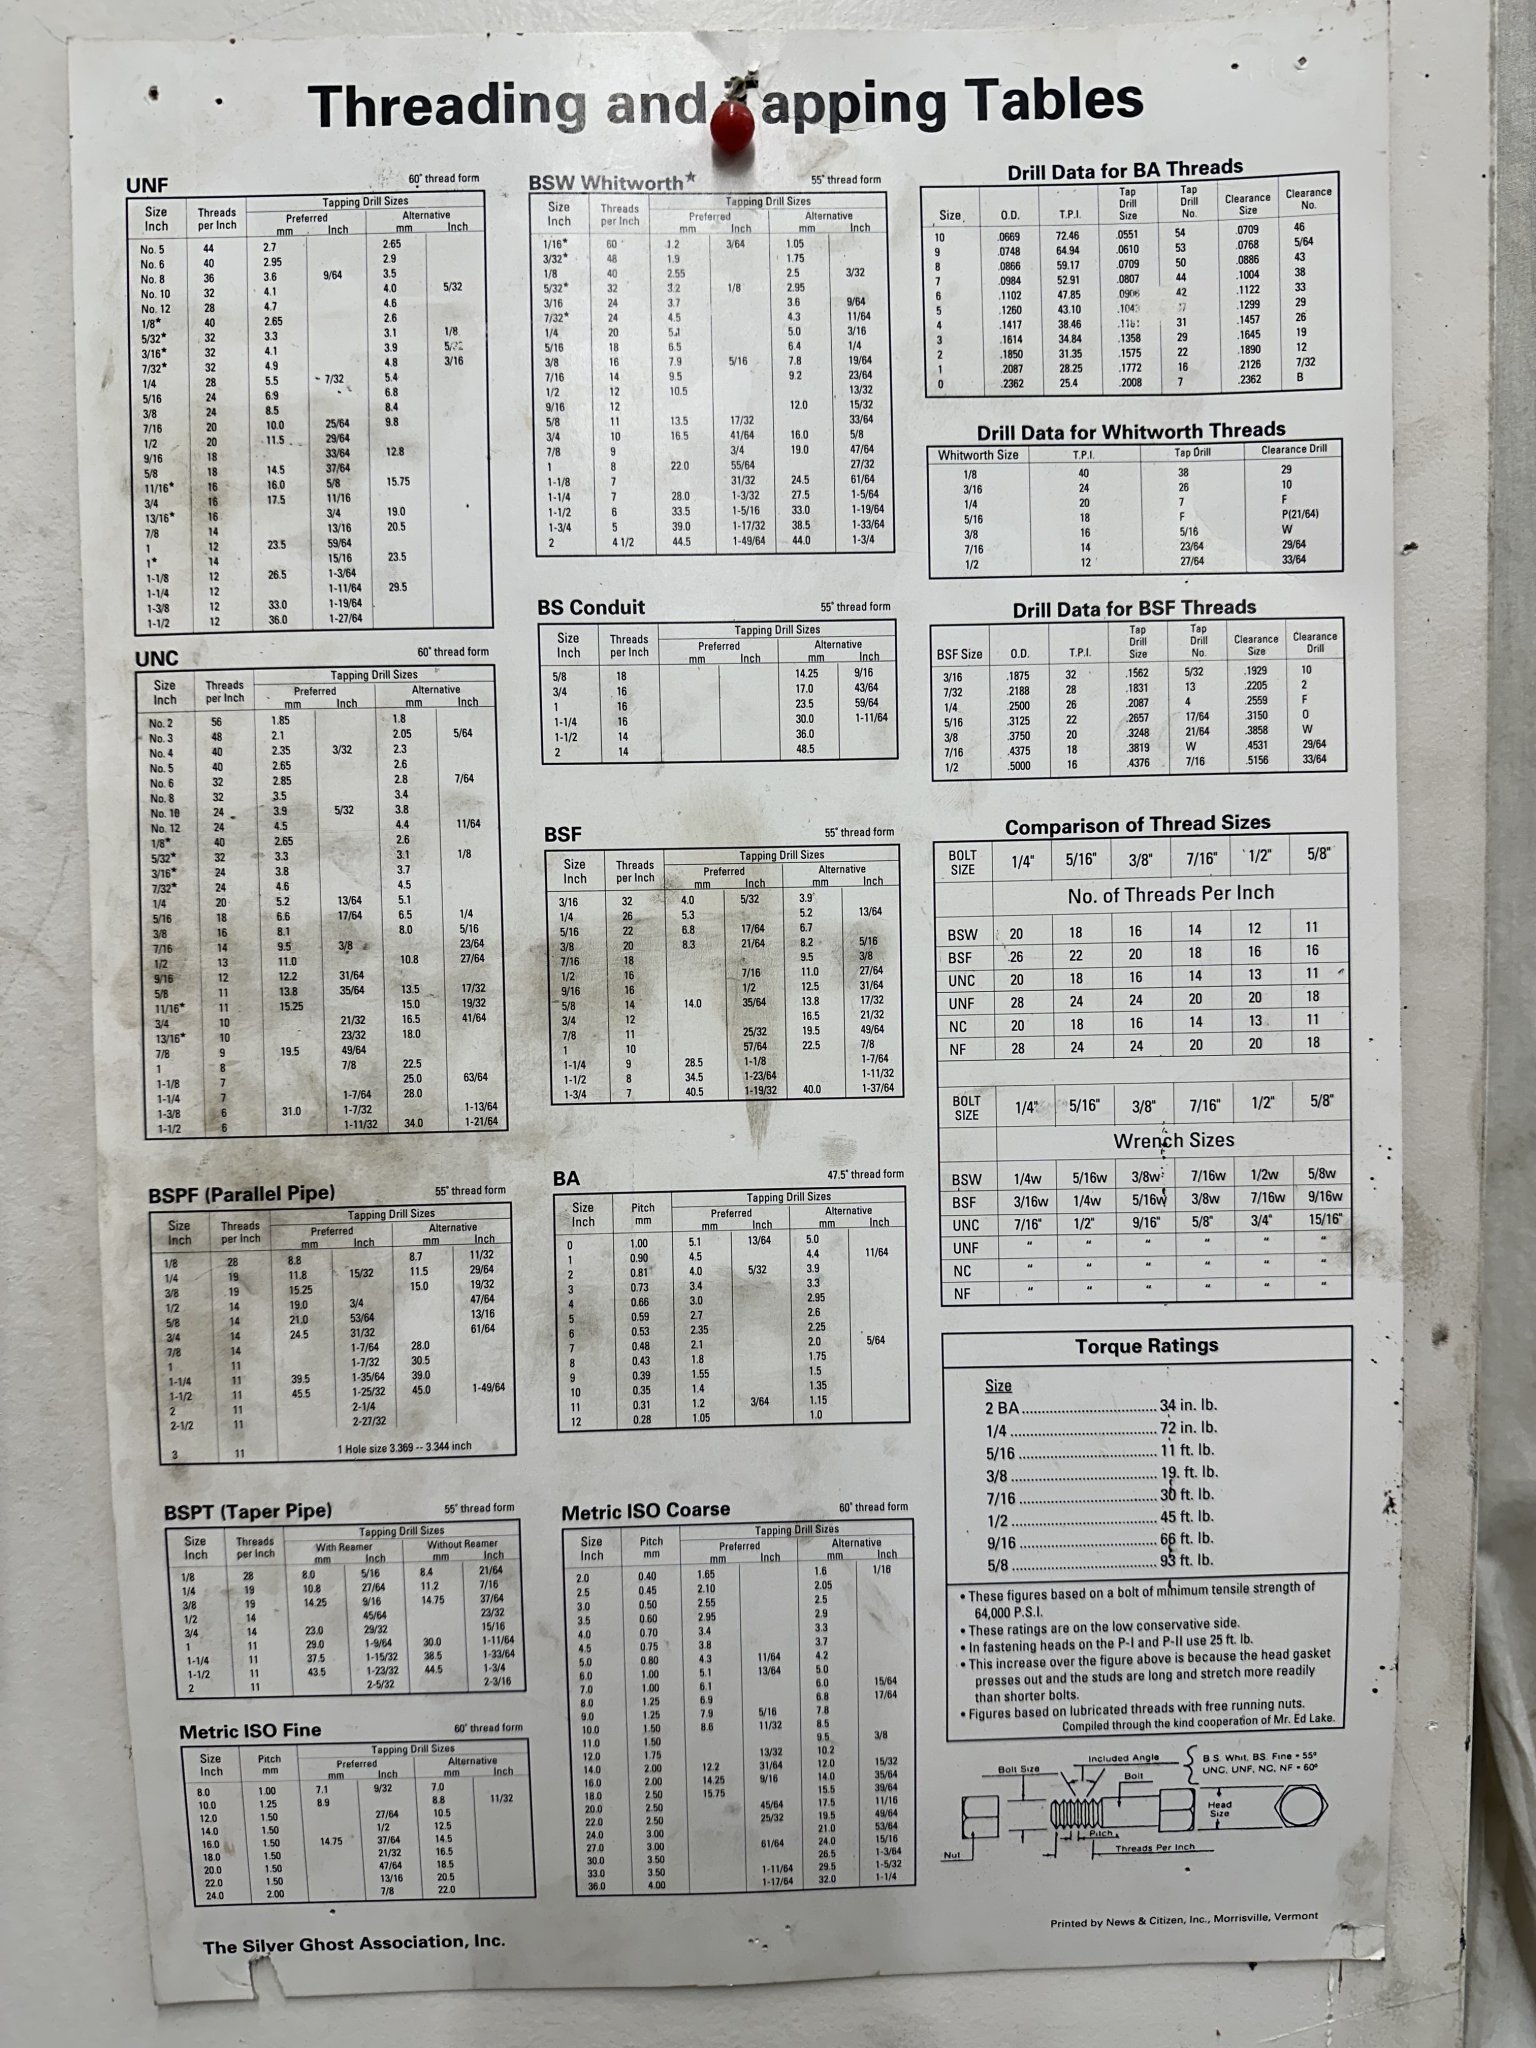 Threading and apping Tables
UNF 60° thread form
Size Inch Threads per Inch Tapping Drill Sizes
Preferred Alternative
mm Inch mm Inch
No. 5 44 2.7 2.65
No. 6 40 2.95 2.9
No. 8 36 3.6 9/64 3.5
No. 10 32 4.1 4.0 5/32
No. 12 28 4.7 4.6
1/8* 40 2.65 2.6
5/32* 32 3.3 3.1 1/8
3/16* 32 4.1 3.9
7/32* 32 4.9 4.8 3/16
1/4 28 5.5 7/32 5.4
5/16 24 6.9 6.8
3/8 24 8.5 8.4
7/16 20 10.0 25/64 9.8
1/2 20 11.5 29/64
9/16 18 33/64 12.8
5/8 18 14.5 37/64
11/16* 16 16.0 5/8 15.75
3/4 16 17.5 11/16
13/16* 16 3/4 19.0
7/8 14 13/16 20.5
1 12 23.5 59/64
1* 14 15/16 23.5
1-1/8 12 26.5 1-3/64
1-1/4 12 1-11/64 29.5
1-3/8 12 33.0 1-19/64
1-1/2 12 36.0 1-27/64
UNC 60° thread form
Size Inch Threads per Inch Tapping Drill Sizes
Preferred Alternative
mm Inch mm Inch
No. 2 56 1.85 1.8
No. 3 48 2.1 2.05 5/64
No. 4 40 2.35 3/32 2.3
No. 5 40 2.65 2.6
No. 6 32 2.85 2.8 7/64
No. 8 32 3.5 3.4
No. 10 24 3.9 5/32 3.8
No. 12 24 4.5 4.4 11/64
1/8* 40 2.65 2.6
5/32* 32 3.3 3.1 1/8
3/16* 24 3.8 3.7
7/32* 24 4.6 4.5
1/4 20 5.2 13/64 5.1
5/16 18 6.6 17/64 6.5 1/4
3/8 16 8.1 8.0 5/16
7/16 14 9.5 3/8 23/64
1/2 13 11.0 10.8 27/64
9/16 12 12.2 31/64
5/8 11 13.8 35/64 13.5 17/32
11/16* 11 15.25 15.0 19/32
3/4 10 21/32 16.5 41/64
13/16* 10 23/32 18.0
7/8 9 19.5 49/64
1 8 7/8 22.5
1-1/8 7 25.0 63/64
1-1/4 7 1-7/64 28.0
1-3/8 6 31.0 1-7/32 1-13/64
1-1/2 6 1-11/32 34.0 1-21/64
BSPF (Parallel Pipe) 55° thread form
Size Inch Threads per Inch Tapping Drill Sizes
Preferred Alternative
mm Inch mm Inch
1/8 28 8.8 8.7 11/32
1/4 19 11.8 15/32 11.5 29/64
3/8 19 15.25 15.0 19/32
1/2 14 19.0 3/4 47/64
5/8 14 21.0 53/64 13/16
3/4 14 24.5 31/32 61/64
7/8 14 1-7/64 28.0
1 11 1-7/32 30.5
1-1/4 11 39.5 1-35/64 39.0
1-1/2 11 45.5 1-25/32 45.0 1-49/64
2 11 2-1/4
2-1/2 11 2-27/32
3 11 1 Hole size 3.369 -- 3.344 inch
BSPT (Taper Pipe) 55° thread form
Size Inch Threads per Inch Tapping Drill Sizes
With Reamer Without Reamer
mm Inch mm Inch
1/8 28 8.0 5/16 8.4 21/64
1/4 19 10.8 27/64 11.2 7/16
3/8 19 14.25 9/16 14.75 37/64
1/2 14 45/64 23/32
3/4 14 23.0 29/32 15/16
1 11 29.0 1-9/64 30.0 1-11/64
1-1/4 11 37.5 1-15/32 38.5 1-33/64
1-1/2 11 43.5 1-23/32 44.5 1-3/4
2 11 2-5/32 2-3/16
Metric ISO Fine 60° thread form
Size Inch Pitch mm Tapping Drill Sizes
Preferred Alternative
mm Inch mm Inch
8.0 1.00 7.1 9/32 7.0
10.0 1.25 8.9 8.8 11/32
12.0 1.50 27/64 10.5
14.0 1.50 1/2 12.5
16.0 1.50 14.75 37/64 14.5
18.0 1.50 21/32 16.5
20.0 1.50 47/64 18.5
22.0 1.50 13/16 20.5
24.0 2.00 7/8 22.0
BSW Whitworth* 55° thread form
Size Inch Threads per Inch Tapping Drill Sizes
Preferred Alternative
mm Inch mm Inch
1/16* 60 1.2 3/64 1.05
3/32* 48 1.9 1.75
1/8 40 2.55 2.5 3/32
5/32* 32 3.2 1/8 2.95
3/16 24 3.7 3.6 9/64
7/32* 24 4.5 4.3 11/64
1/4 20 5.1 5.0 3/16
5/16 18 6.5 6.4 1/4
3/8 16 7.9 5/16 7.8 19/64
7/16 14 9.5 9.2 23/64
1/2 12 10.5 13/32
9/16 12 12.0 15/32
5/8 11 13.5 17/32 33/64
3/4 10 16.5 41/64 16.0 5/8
7/8 9 3/4 19.0 47/64
1 8 22.0 55/64 27/32
1-1/8 7 31/32 24.5 61/64
1-1/4 7 28.0 1-3/32 27.5 1-5/64
1-1/2 6 33.5 1-5/16 33.0 1-19/64
1-3/4 5 39.0 1-17/32 38.5 1-33/64
2 4 1/2 44.5 1-49/64 44.0 1-3/4
BS Conduit 55° thread form
Size Inch Threads per Inch Tapping Drill Sizes
Preferred Alternative
mm Inch mm Inch
5/8 18 14.25 9/16
3/4 16 17.0 43/64
1 16 23.5 59/64
1-1/4 16 30.0 1-11/64
1-1/2 14 36.0
2 14 48.5
BSF 55° thread form
Size Inch Threads per Inch Tapping Drill Sizes
Preferred Alternative
mm Inch mm Inch
3/16 32 4.0 5/32 3.9
1/4 26 5.3 5.2 13/64
5/16 22 6.8 17/64 6.7
3/8 20 8.3 21/64 8.2 5/16
7/16 18 9.5 3/8
1/2 16 7/16 11.0 27/64
9/16 16 1/2 12.5 31/64
5/8 14 14.0 35/64 13.8 17/32
3/4 12 16.5 21/32
7/8 11 25/32 19.5 49/64
1 10 57/64 22.5 7/8
1-1/4 9 28.5 1-1/8 1-7/64
1-1/2 8 34.5 1-23/64 1-11/32
1-3/4 7 40.5 1-19/32 40.0 1-37/64
BA 47.5° thread form
Size Inch Pitch mm Tapping Drill Sizes
Preferred Alternative
mm Inch mm Inch
0 1.00 5.1 13/64 5.0
1 0.90 4.5 4.4 11/64
2 0.81 4.0 5/32 3.9
3 0.73 3.4 3.3
4 0.66 3.0 2.95
5 0.59 2.7 2.6
6 0.53 2.35 2.25
7 0.48 2.1 2.0 5/64
8 0.43 1.8 1.75
9 0.39 1.55 1.5
10 0.35 1.4 1.35
11 0.31 1.2 3/64 1.15
12 0.28 1.05 1.0
Metric ISO Coarse 60° thread form
Size Inch Pitch mm Tapping Drill Sizes
Preferred Alternative
mm Inch mm Inch
2.0 0.40 1.65 1.6 1/16
2.5 0.45 2.10 2.05
3.0 0.50 2.55 2.5
3.5 0.60 2.95 2.9
4.0 0.70 3.4 3.3
4.5 0.75 3.8 3.7
5.0 0.80 4.3 11/64 4.2
6.0 1.00 5.1 13/64 5.0
7.0 1.00 6.1 6.0 15/64
8.0 1.25 6.9 6.8 17/64
9.0 1.25 7.9 5/16 7.8
10.0 1.50 8.6 11/32 8.5
11.0 1.50 9.5 3/8
12.0 1.75 13/32 10.2
14.0 2.00 12.2 31/64 12.0 15/32
16.0 2.00 14.25 9/16 14.0 35/64
18.0 2.50 15.75 15.5 39/64
20.0 2.50 45/64 17.5 11/16
22.0 2.50 25/32 19.5 49/64
24.0 3.00 21.0 53/64
27.0 3.00 61/64 24.0 15/16
30.0 3.50 26.5 1-3/64
33.0 3.50 1-11/64 29.5 1-5/32
36.0 4.00 1-17/64 32.0 1-1/4
Drill Data for BA Threads
Size O.D. T.P.I. Tap Drill Size Tap Drill No. Clearance Size Clearance No.
10 .0669 72.46 .0551 54 .0709 46
9 .0748 64.94 .0610 53 .0768 5/64
8 .0866 59.17 .0709 50 .0886 43
7 .0984 52.91 .0807 44 .1004 38
6 .1102 47.85 42 .1122 33
5 .1260 43.10 .1299 29
4 .1417 38.46 31 .1457 26
3 .1614 34.84 .1358 29 .1645 19
2 .1850 31.35 .1575 22 .1890 12
1 .2087 28.25 .1772 16 .2126 7/32
0 .2362 25.4 .2008 7 .2362 B
Drill Data for Whitworth Threads
Whitworth Size T.P.I. Tap Drill Clearance Drill
1/8 40 38 29
3/16 24 26 10
1/4 20 7 F
5/16 18 F P(21/64)
3/8 16 5/16 W
7/16 14 23/64 29/64
1/2 12 27/64 33/64
Drill Data for BSF Threads
BSF Size O.D. T.P.I. Tap Drill Size Tap Drill No. Clearance Size Clearance Drill
3/16 .1875 32 .1562 5/32 .1929 10
7/32 .2188 28 .1831 13 .2205 2
1/4 .2500 26 .2087 4 .2559 F
5/16 .3125 22 .2657 17/64 .3150 O
3/8 .3750 20 .3248 21/64 .3858 W
7/16 .4375 18 .3819 W .4531 29/64
1/2 .5000 16 .4376 7/16 .5156 33/64
Comparison of Thread Sizes
BOLT SIZE 1/4" 5/16" 3/8" 7/16" 1/2" 5/8"
No. of Threads Per Inch
BSW 20 18 16 14 12 11
BSF 26 22 20 18 16 16
UNC 20 18 16 14 13 11
UNF 28 24 24 20 20 18
NC 20 18 16 14 13 11
NF 28 24 24 20 20 18
BOLT SIZE 1/4" 5/16" 3/8" 7/16" 1/2" 5/8"
Wrench Sizes
BSW 1/4w 5/16w 3/8w 7/16w 1/2w 5/8w
BSF 3/16w 1/4w 5/16w 3/8w 7/16w 9/16w
UNC 7/16" 1/2" 9/16" 5/8" 3/4" 15/16"
UNF " " " " " "
NC " " " " " "
NF " " " " " "
Torque Ratings
Size
2 BA.................................. 34 in. lb.
1/4 .................................... 72 in. lb.
5/16 ................................... 11 ft. lb.
3/8 .................................... 19. ft. lb.
7/16 ................................... 30 ft. lb.
1/2 .................................... 45 ft. lb.
9/16 ................................... 66 ft. lb.
5/8 .................................... 93 ft. lb.
• These figures based on a bolt of minimum tensile strength of
64,000 P.S.I.
• These ratings are on the low conservative side.
• In fastening heads on the P-I and P-II use 25 ft. lb.
• This increase over the figure above is because the head gasket
presses out and the studs are long and stretch more readily
than shorter bolts.
• Figures based on lubricated threads with free running nuts.
Compiled through the kind cooperation of Mr. Ed Lake.
Included Angle B.S. Whit. BS. Fine - 55°
UNC, UNF, NC, NF - 60°
Bolt Size Bolt
Head Size
Pitch
Nut Threads Per Inch
Printed by News & Citizen, Inc., Morrisville, Vermont
The Silver Ghost Association, Inc.